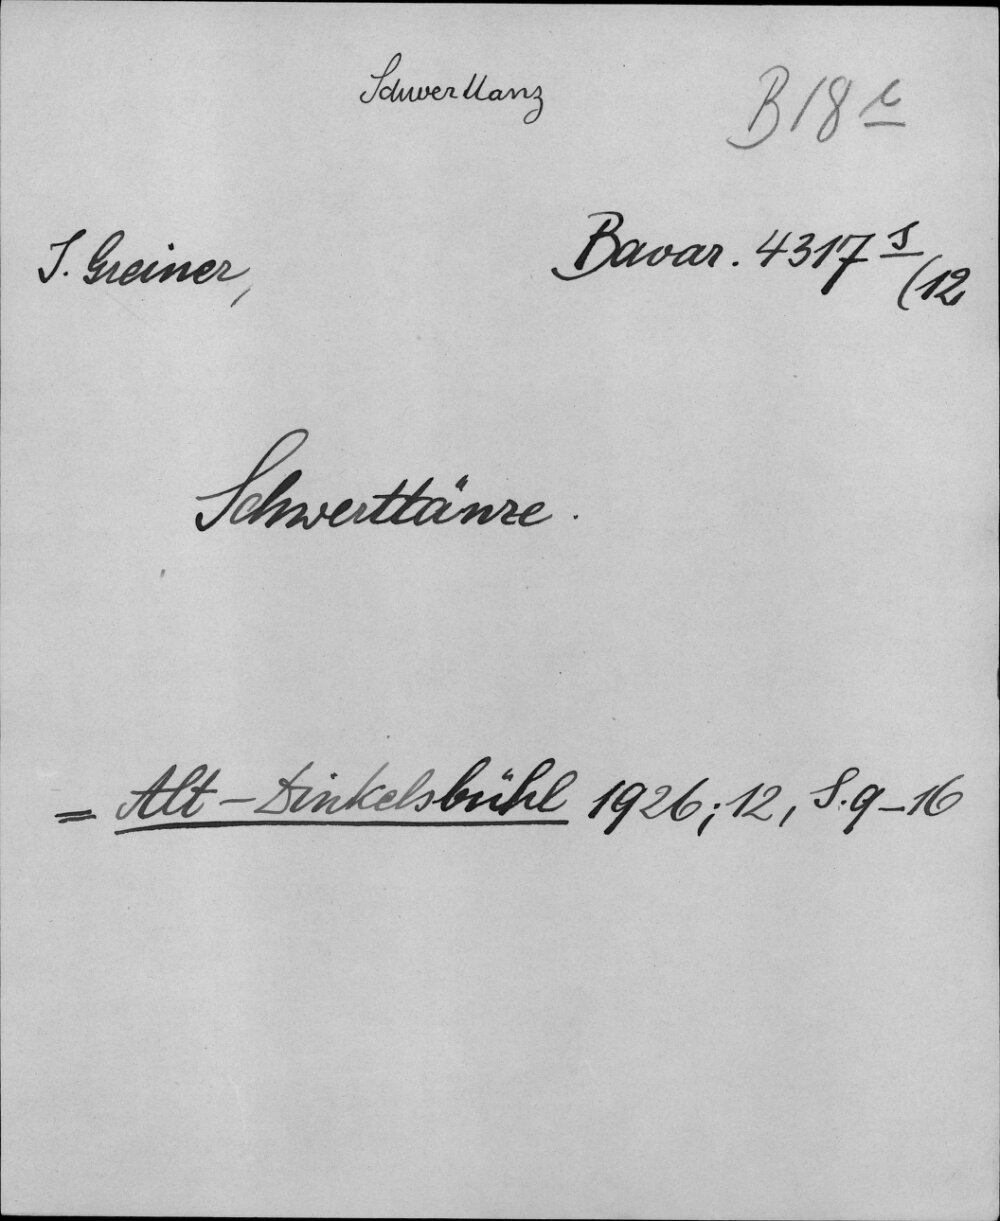 Schwerttanz
B 18 c
J. Greiner,
Bavar. 4317 s
(12
Schwerttänze.
= Alt-Dinkelsbühl 1926; 12, S. 9-16